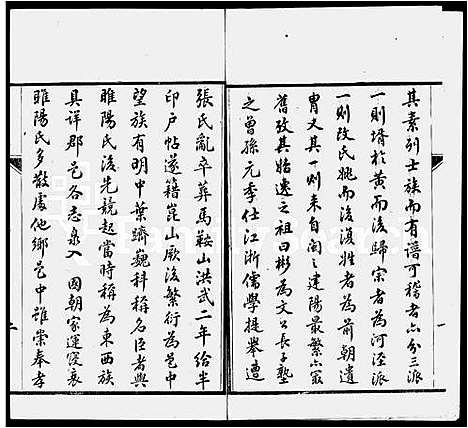 其素列士族而有譜可稽者亦分三派
一則壻於黄而後歸宗者為河涇派
一則改氏姚而後復姓者為前朝遺
胄又其一則来自閩之建陽最繁亦最
舊攷其始遷之祖曰彬為文公長子塾
之曾孫元季仕江浙儒學提舉遭
張氏亂卒葬馬鞍山洪武二年給半
印户帖遂籍崑山厥後繁衍為邑中
望族有明中葉躋巍科稱名臣者與
睢陽氏後先競起當時稱為東西族
具詳郡邑各志泉入 國朝家運寖衰
睢陽氏多散處他鄉邑中雖崇奉孝
一
二